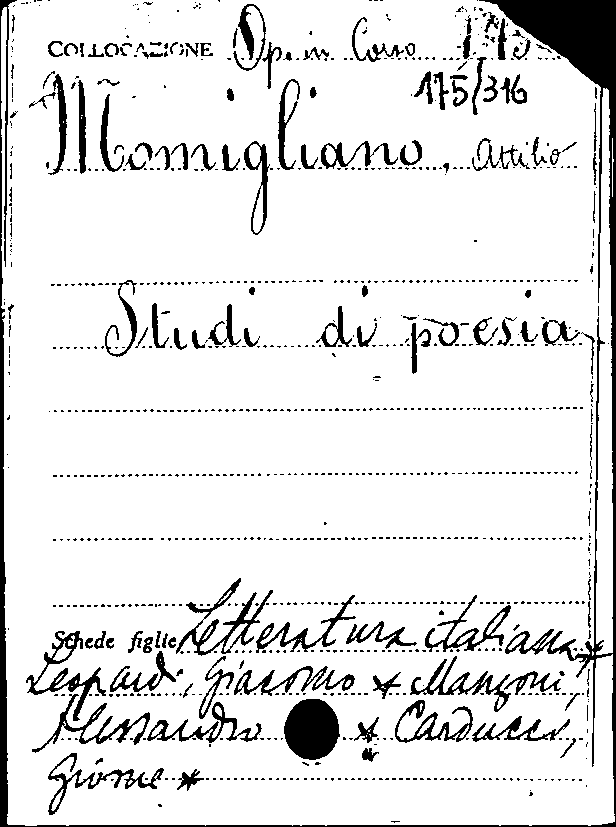 COLLOCAZIONE Op. in Corso
175/316
Momigliano, Attilio
Studi di poesia
Schede figlie Letteratura italiana *
Leopardi, Giacomo * Manzoni,
Alessandro * Carducci,
Giosue *